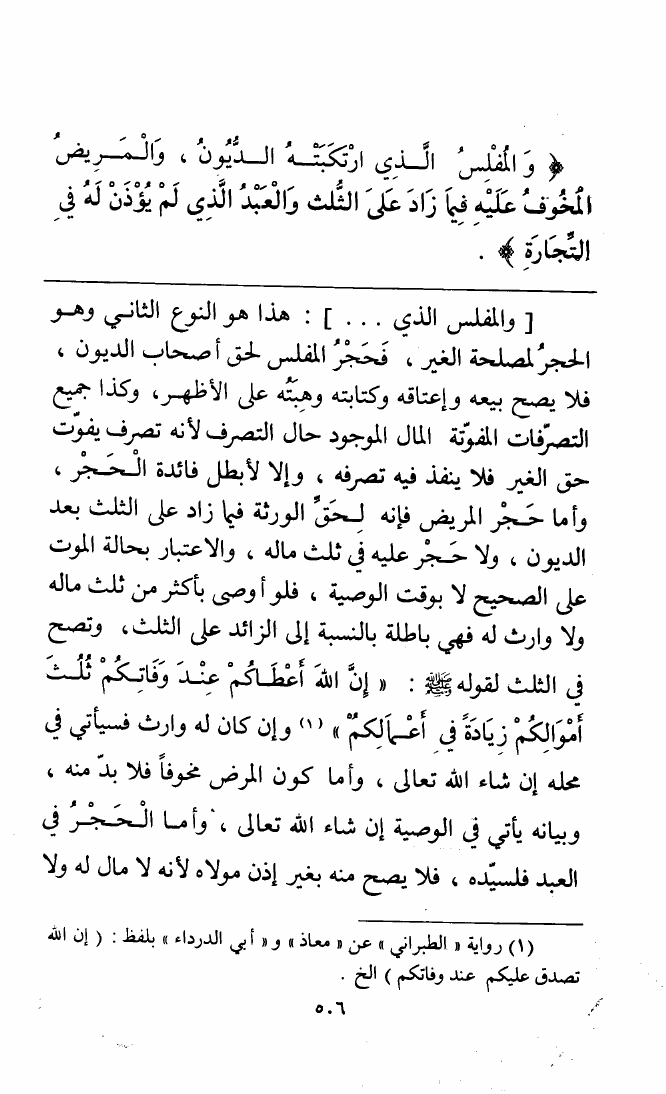 ﴿ وَالْمُفْلِسُ الَّـذِي ارْتَكَبَتْـهُ الـدُّيُونُ ، وَالْمَـرِيضُ
الْمَخُوفُ عَلَيْهِ فِيمَا زَادَ عَلَى الثُّلُث وَالْعَبْدُ الَّذِي لَمْ يُؤْذَنْ لَهُ فِي
التِّجَارَةِ ﴾ .
[ والمفلس الذي . . . ] : هذا هو النوع الثاني وهـو
الحجرُ لمصلحة الغير ، فَحَجْرُ المفلس لحق أصحاب الديون ،
فلا يصح بيعه وإعتاقه وكتابته وهِبَتُه على الأظهـر، وكذا جميع
التصرّفات المفوّتة المال الموجود حال التصرف لأنه تصرف يفوّت
حق الغير فلا ينفذ فيه تصرفه ، وإلا لأبطل فائدة الْـحَـجْر ،
وأما حَـجْر المريض فإنه لِـحَقِّ الورثة فيما زاد على الثلث بعد
الديون ، ولا حَـجْر عليه في ثلث ماله ، والاعتبار بحالة الموت
على الصحيح لا بوقت الوصية ، فلو أوصى بأكثر من ثلث ماله
ولا وارث له فهي باطلة بالنسبة إلى الزائد على الثلث، وتصح
في الثلث لقوله ﷺ : « إِنَّ اللهَ أَعْطَـاكُمْ عِنْـدَ وَفَاتِـكُمْ ثُلُـثَ
أَمْوَالِكُمْ زِيَادَةً فِي أَعْـمَالِكُمْ » (١) وإن كان له وارث فسيأتي في
محله إن شاء الله تعالى ، وأما كون المرض مخوفاً فلا بدّ منه ،
وبيانه يأتي في الوصية إن شاء الله تعالى ، وأمـا الْـحَـجْـرُ في
العبد فلسيّده ، فلا يصح منه بغير إذن مولاه لأنه لا مال له ولا
(١) رواية « الطبراني » عن « معاذ » و « أبي الدرداء » بلفظ : ( إن الله
تصدق عليكم عند وفاتكم ) الخ .
٥٠٦